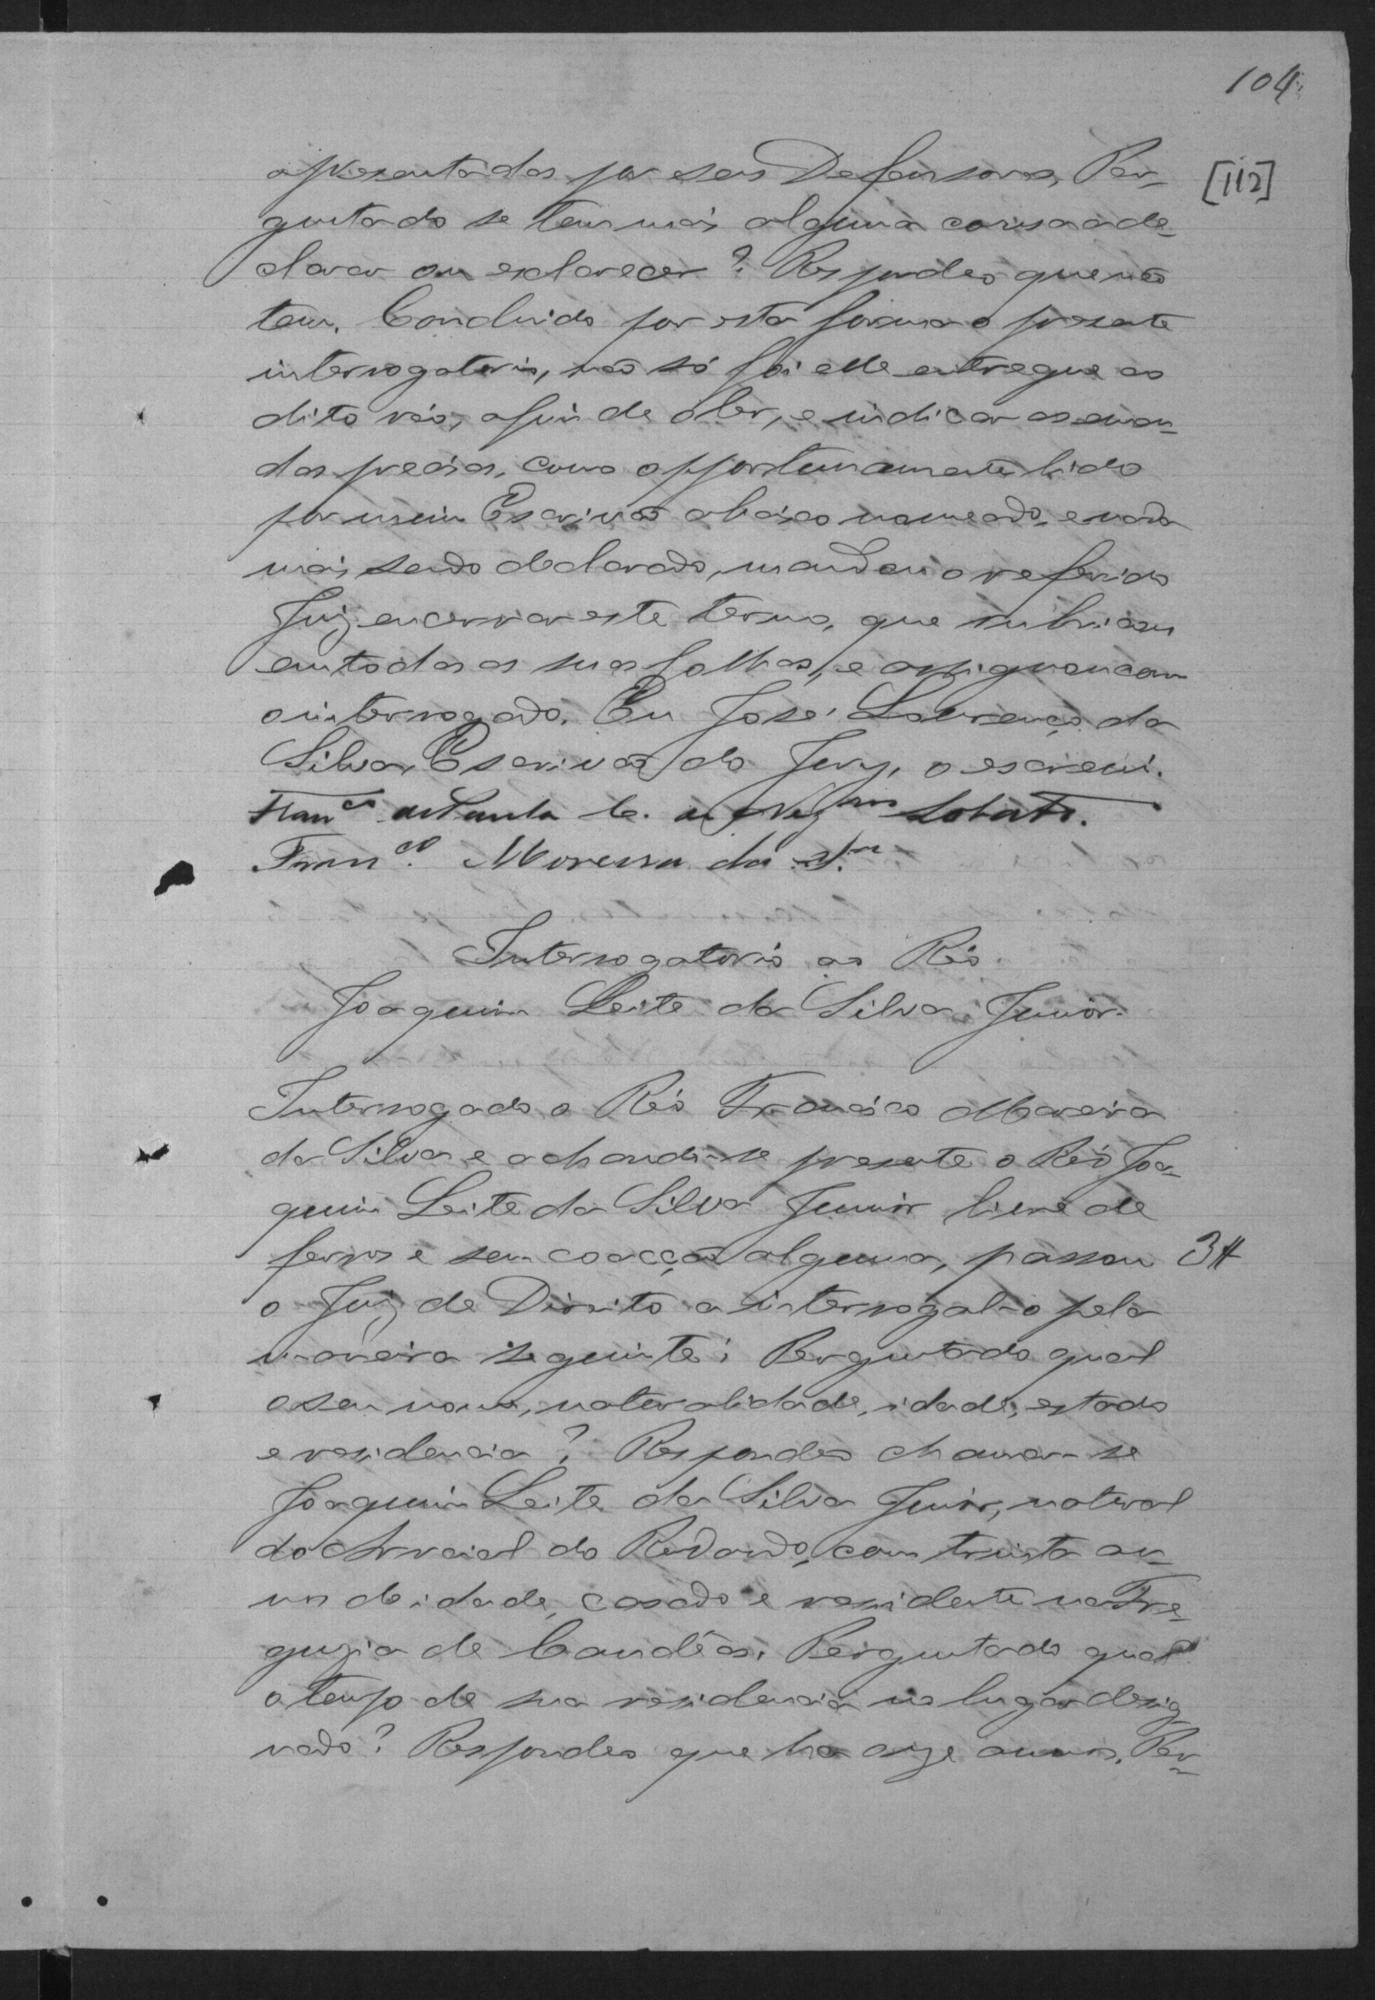 104
[112]
apresentadas por seus Defensores, Per-
guntado se tem mais alguma cousa a de-
clarar ou esclarecer? Respondeo que não
tem. Concluido por esta forma o presente
interrogatorio, não só foi elle entregue ao
dito réo, afim de o ler, e indicar as emen-
das precisas, como opportunamente lido
por mim Escrivão abaixo nomeado, e nada
mais sendo declarado, mandou o referido
Juiz encerrar este termo, que rubricou
em todas as suas folhas, e assignou com
o interrogado. Eu José Lourenço da
Silva, Escrivão do Jury, o escrevi.
Fran.co de Paula C. de Neg.ros Lobato.
Fran.co Moreira da S.a
Interrogatorio ao Réo
Joaquim Leite da Silva Junior.
Interrogado o Réo Francisco Moreira
da Silva e achando-se presente o Réo Joa-
quim Leite da Silva Junior livre de
ferros e sem coacção alguma, passou 3#
o Juiz de Direito a interrogal-o pela
maneira seguinte: Perguntado qual
o seu nome, naturalidade, idade, estado
e residencia? Respondeo chamar-se
Joaquim Leite da Silva Junior, natural
do Arraial do Redondo, com trinta an-
nos de idade, casado e residente na Fre-
guezia de Candêas. Perguntado qual
o tempo de sua residencia no lugar desig-
nado? Respondeo que ha onze annos. Per-